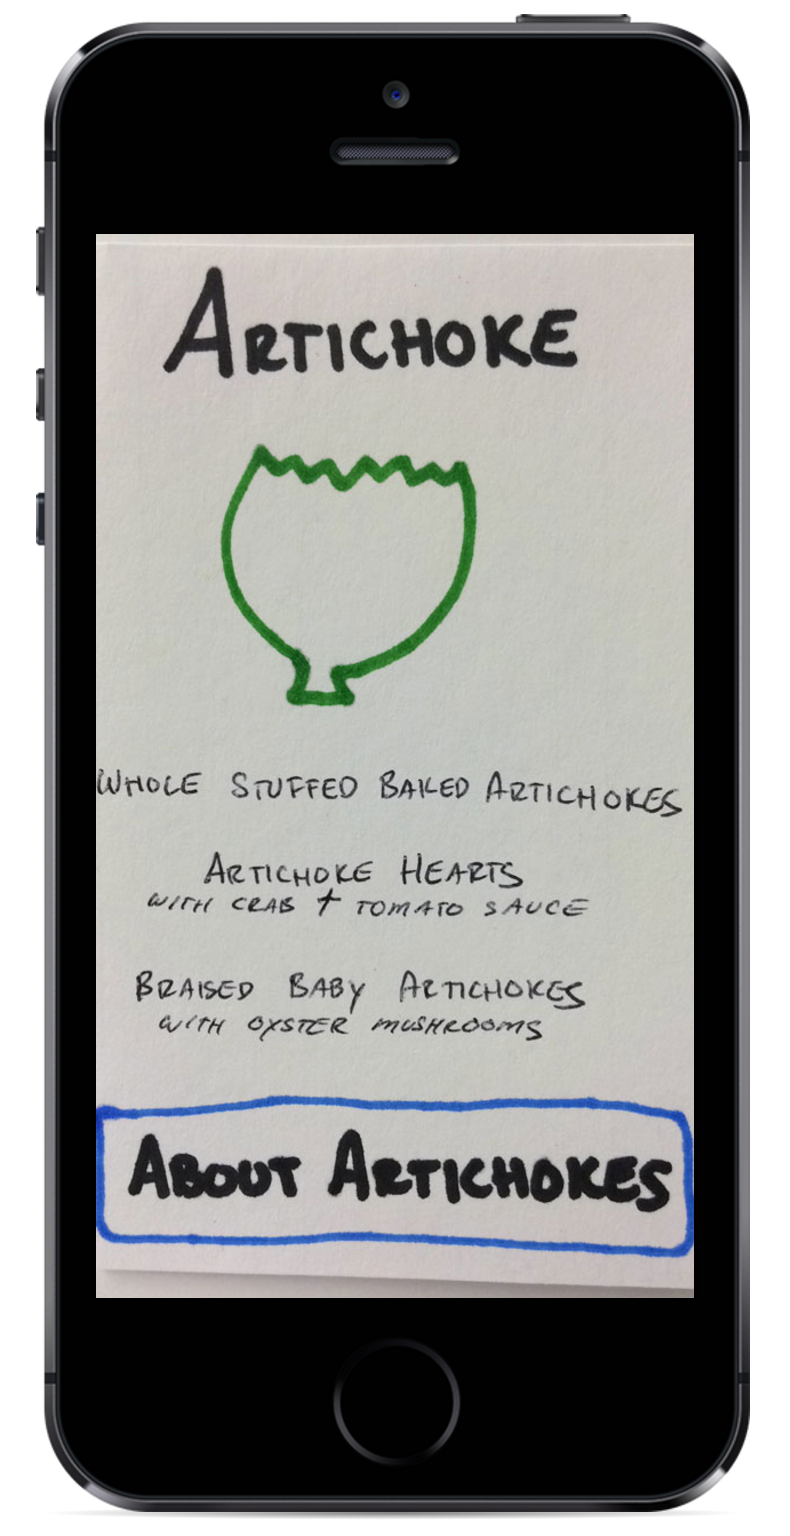 ARTICHOKE
WHOLE STUFFED BAKED ARTICHOKES
ARTICHOKE HEARTS
WITH CRAB + TOMATO SAUCE
BRAISED BABY ARTICHOKES
WITH OYSTER MUSHROOMS
ABOUT ARTICHOKES